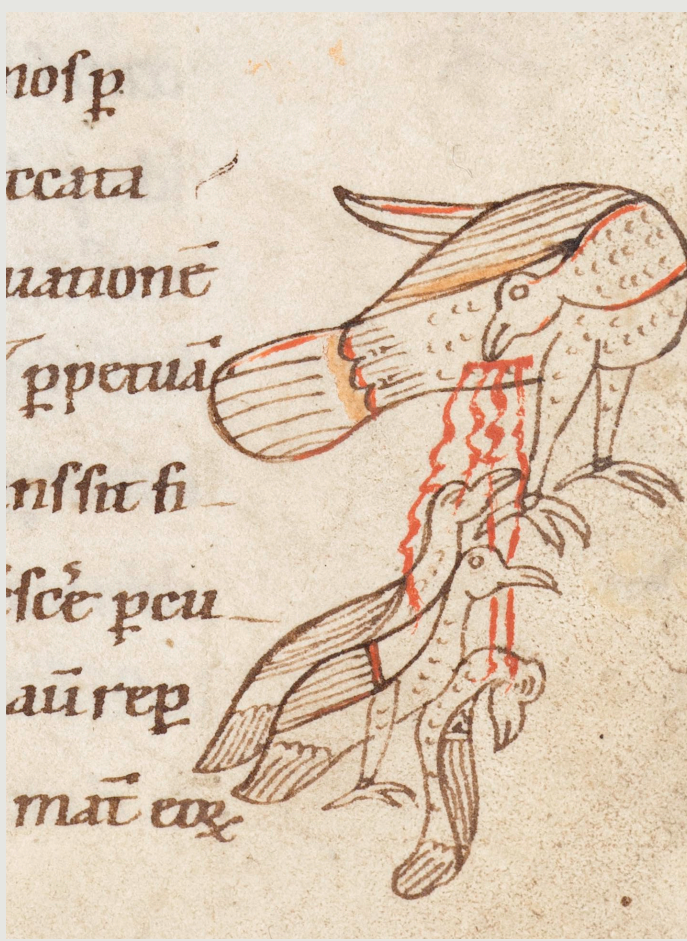 nos p̄
ccata
uationē
ꝑpetuā
nssit fi
esce ꝑcu
aū rep̄
mat̄ eoꝝ